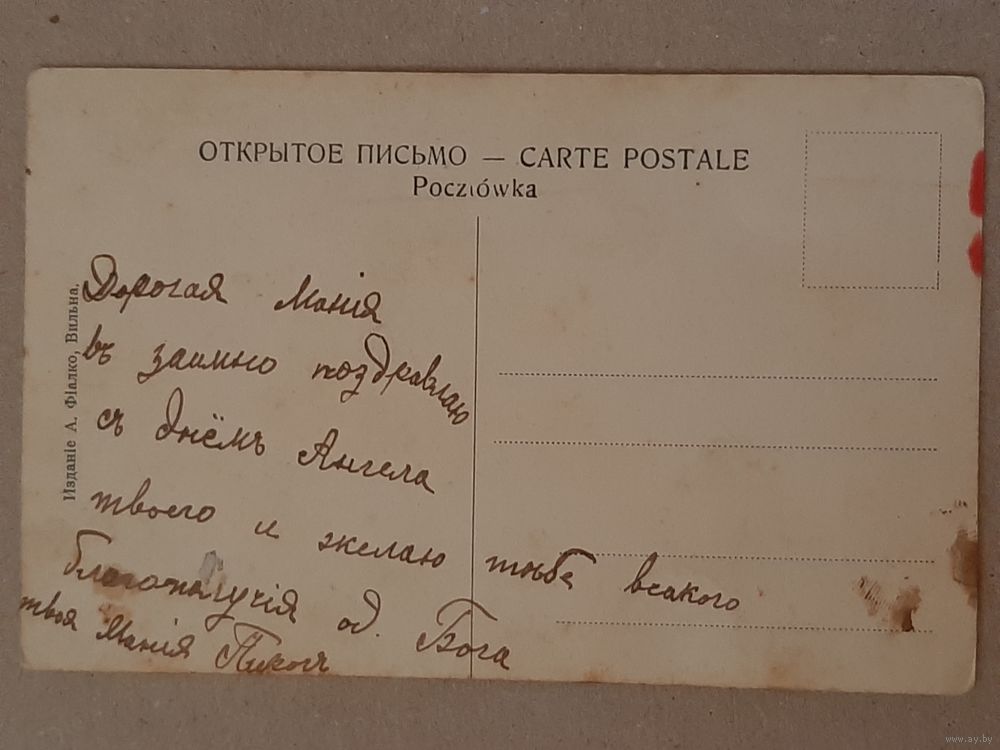 ОТКРЫТОЕ ПИСЬМО — CARTE POSTALE
Pocztówka
Изданіе А. Фіалко, Вильна.
Дорогая Манія
въ заимно поздравлаю
съ днёмъ Ангела
твоего и желаю тѣбе всакого
благополучія од. Бога
твоя Манія
www.ay.by